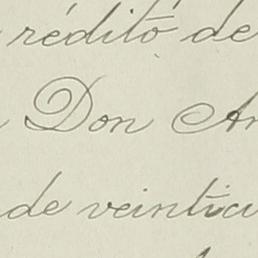 rédito de
Don An
de veintici